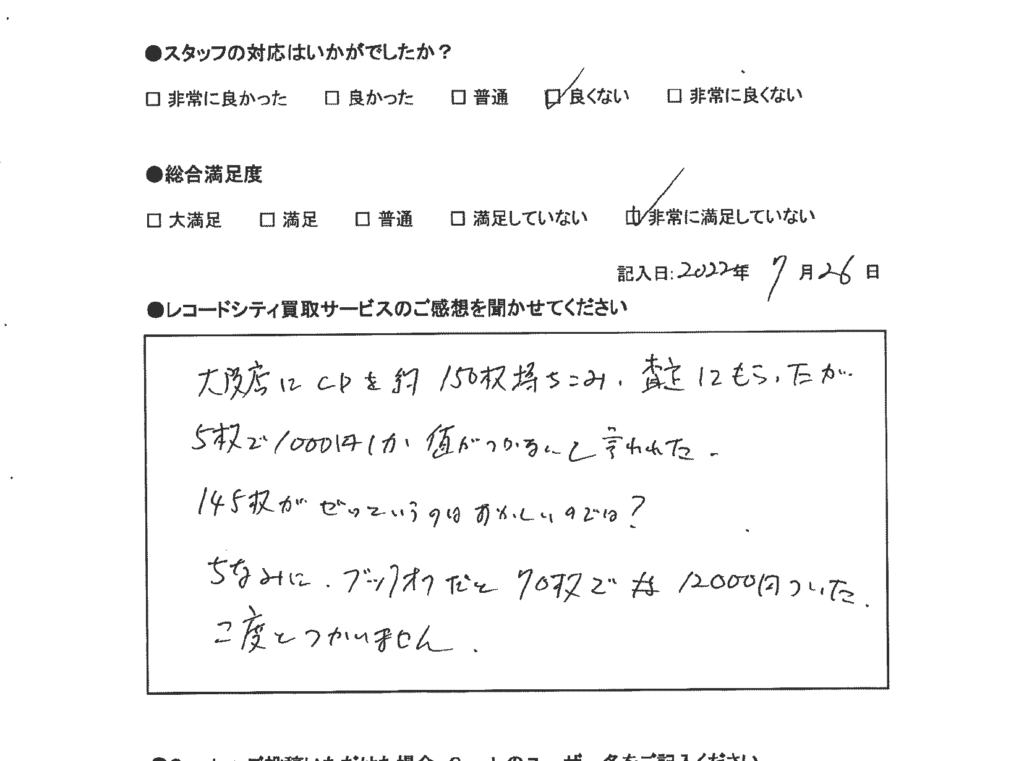 ●スタッフの対応はいかがでしたか？
□ 非常に良かった □ 良かった □ 普通 ☑ 良くない □ 非常に良くない
●総合満足度
□ 大満足 □ 満足 □ 普通 □ 満足していない ☑ 非常に満足していない
記入日:2022年 7月26日
●レコードシティ買取サービスのご感想を聞かせてください
大阪店にCDを約150枚持ちこみ、査定にもらったが
5枚で1000円しか値がつかないと言われた。
145枚がぜロっていうのはおかしいのでは？
ちなみに、ブックオフだと70枚で 12000円ついた.
二度とつかいません.